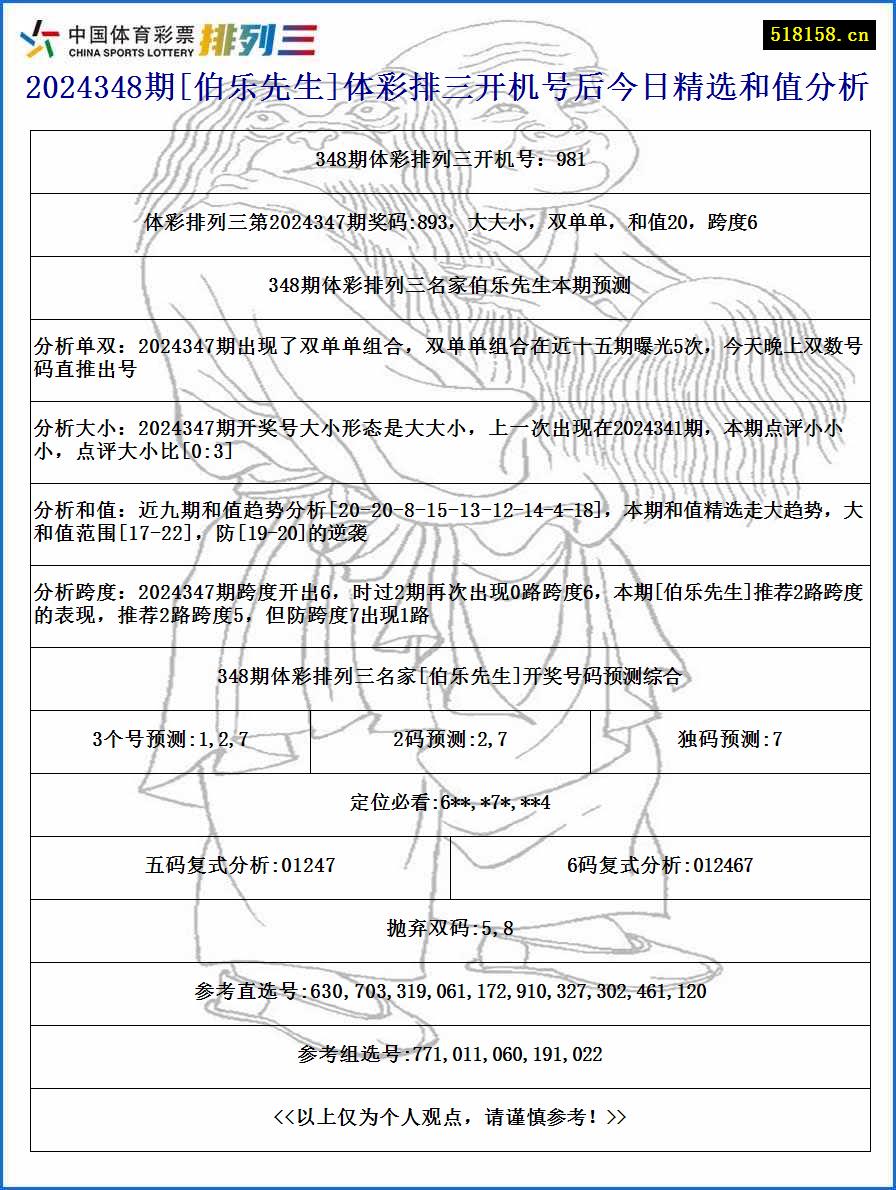 中国体育彩票
CHINA SPORTS LOTTERY
排列三
518158.cn
2024348期[伯乐先生]体彩排三开机号后今日精选和值分析
348期体彩排列三开机号：981
体彩排列三第2024347期奖码:893，大大小，双单单，和值20，跨度6
348期体彩排列三名家伯乐先生本期预测
分析单双：2024347期出现了双单单组合，双单单组合在近十五期曝光5次，今天晚上双数号
码直推出号
分析大小：2024347期开奖号大小形态是大大小，上一次出现在2024341期，本期点评小小
小，点评大小比[0:3]
分析和值：近九期和值趋势分析[20-20-8-15-13-12-14-4-18]，本期和值精选走大趋势，大
和值范围[17-22]，防[19-20]的逆袭
分析跨度：2024347期跨度开出6，时过2期再次出现0路跨度6，本期[伯乐先生]推荐2路跨度
的表现，推荐2路跨度5，但防跨度7出现1路
348期体彩排列三名家[伯乐先生]开奖号码预测综合
3个号预测:1,2,7
2码预测:2,7
独码预测:7
定位必看:6**,*7*,**4
五码复式分析:01247
6码复式分析:012467
抛弃双码:5,8
参考直选号:630,703,319,061,172,910,327,302,461,120
参考组选号:771,011,060,191,022
<<以上仅为个人观点，请谨慎参考！>>